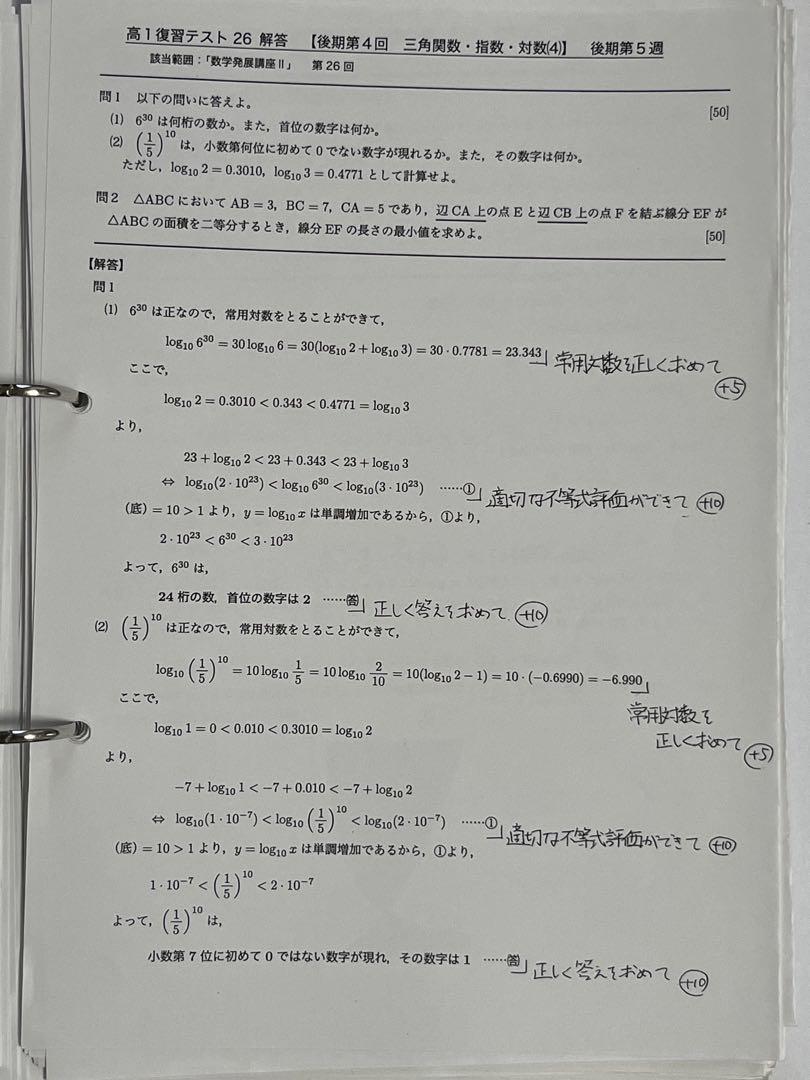 高1復習テスト 26 解答 【後期第4回 三角関数・指数・対数(4)】 後期第5週
該当範囲：「数学発展講座Ⅱ」 第26回
問1 以下の問いに答えよ。 [50]
(1) 6^30 は何桁の数か。また，首位の数字は何か。
(2) (1/5)^10 は，小数第何位に初めて0でない数字が現れるか。また，その数字は何か。
ただし，log₁₀ 2 = 0.3010，log₁₀ 3 = 0.4771 として計算せよ。
問2 △ABC において AB = 3，BC = 7，CA = 5 であり，辺 CA 上の点 E と辺 CB 上の点 F を結ぶ線分 EF が
△ABC の面積を二等分するとき，線分 EF の長さの最小値を求めよ。 [50]
【解答】
問1
(1) 6^30 は正なので，常用対数をとることができて，
log₁₀ 6^30 = 30 log₁₀ 6 = 30(log₁₀ 2 + log₁₀ 3) = 30 · 0.7781 = 23.343 」常用対数を正しく求めて
+5
ここで，
log₁₀ 2 = 0.3010 < 0.343 < 0.4771 = log₁₀ 3
より，
23 + log₁₀ 2 < 23 + 0.343 < 23 + log₁₀ 3
⇔ log₁₀(2 · 10^23) < log₁₀ 6^30 < log₁₀(3 · 10^23) ……① 」適切な不等式評価ができて +10
(底) = 10 > 1 より，y = log₁₀ x は単調増加であるから，①より，
2 · 10^23 < 6^30 < 3 · 10^23
よって，6^30 は，
24 桁の数，首位の数字は 2 ……答 」正しく答えを求めて +10
(2) (1/5)^10 は正なので，常用対数をとることができて，
log₁₀ (1/5)^10 = 10 log₁₀ 1/5 = 10 log₁₀ 2/10 = 10(log₁₀ 2 − 1) = 10 · (−0.6990) = −6.990 」
常用対数を
ここで，
正しく求めて +5
log₁₀ 1 = 0 < 0.010 < 0.3010 = log₁₀ 2
より，
−7 + log₁₀ 1 < −7 + 0.010 < −7 + log₁₀ 2
⇔ log₁₀(1 · 10^−7) < log₁₀ (1/5)^10 < log₁₀(2 · 10^−7) ……① 」適切な不等式評価ができて +10
(底) = 10 > 1 より，y = log₁₀ x は単調増加であるから，①より，
1 · 10^−7 < (1/5)^10 < 2 · 10^−7
よって，(1/5)^10 は，
小数第 7 位に初めて 0 ではない数字が現れ，その数字は 1 ……答 」正しく答えを求めて +10